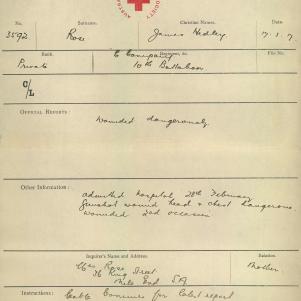 No. Surname. Christian Names. Date.
3592 Rose James Hedley 7.5.7.
Rank. Regiment, &c. File No.
Private C Company
10th Battalion
C/L
OFFICIAL REPORTS:
Wounded dangerously
OTHER INFORMATION:
admitted hospital 28th February
Gunshot wound head & chest Dangerous
wounded 2nd occasion
Inquirer's Name and Address. Relation.
Mrs Rose Mother
36 King Street
Mile End S.A.
INSTRUCTIONS: Cable Commrs for latest report